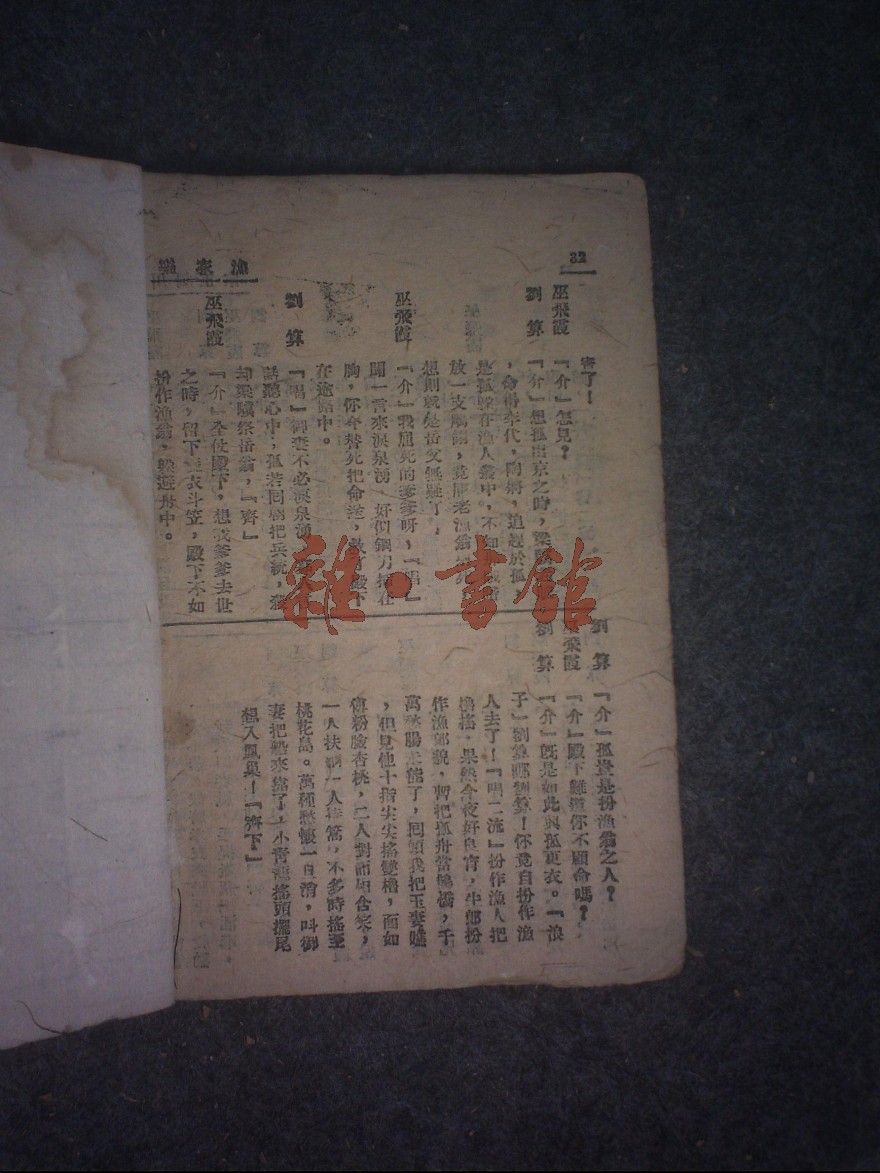 32
漁家樂
害了！
巫飛霞 『介』怎見？
劉算 『介』想孤出京之時，梁
，命得奉代，追趕於孤，
是孤躲在漁人叢中，不知
放一支鵰翎，竟
想則就是岳父無疑了，
巫飛霞 『介』我屈死的爹爹呀，『唱』
聞一言來淚泉湧，好似鋼刀 在
胸，你今替死把命 ， 殿下
在途路中。
劉算 『唱』御妻不必淚泉湧，
話聽心中，孤若回朝把兵統，
却梁驥祭岳翁，『齊』
巫飛霞 『介』全仗殿下，想我爹爹去世
之時，留下 衣斗笠，殿下不如
扮作漁翁，躲遊舟中。
劉算 『介』孤豈是扮漁翁之人？
巫飛霞 『介』殿下難道你不顧命嗎？
劉算 『介』既是如此與孤更衣。『浪
子』劉算呀劉算！你竟自扮作漁
人去了！『唱二流』扮作漁人把
櫓搖，果然今夜好良宵，牛郎扮
作漁郎貌，暫把孤舟當鵲橋，千
萬愁腸 能了，回頭我把玉妻瞧
，但見他十指尖尖搖雙櫓，面如
傅粉臉杏桃，二人對面 含笑，
一人扶 一人 篙，不多時搖至
桃花島。萬種愁懷一旦消，叫御
妻把船來靠了，小青 搖頭擺尾
想入鳳巢！『齊下』
雜·書館